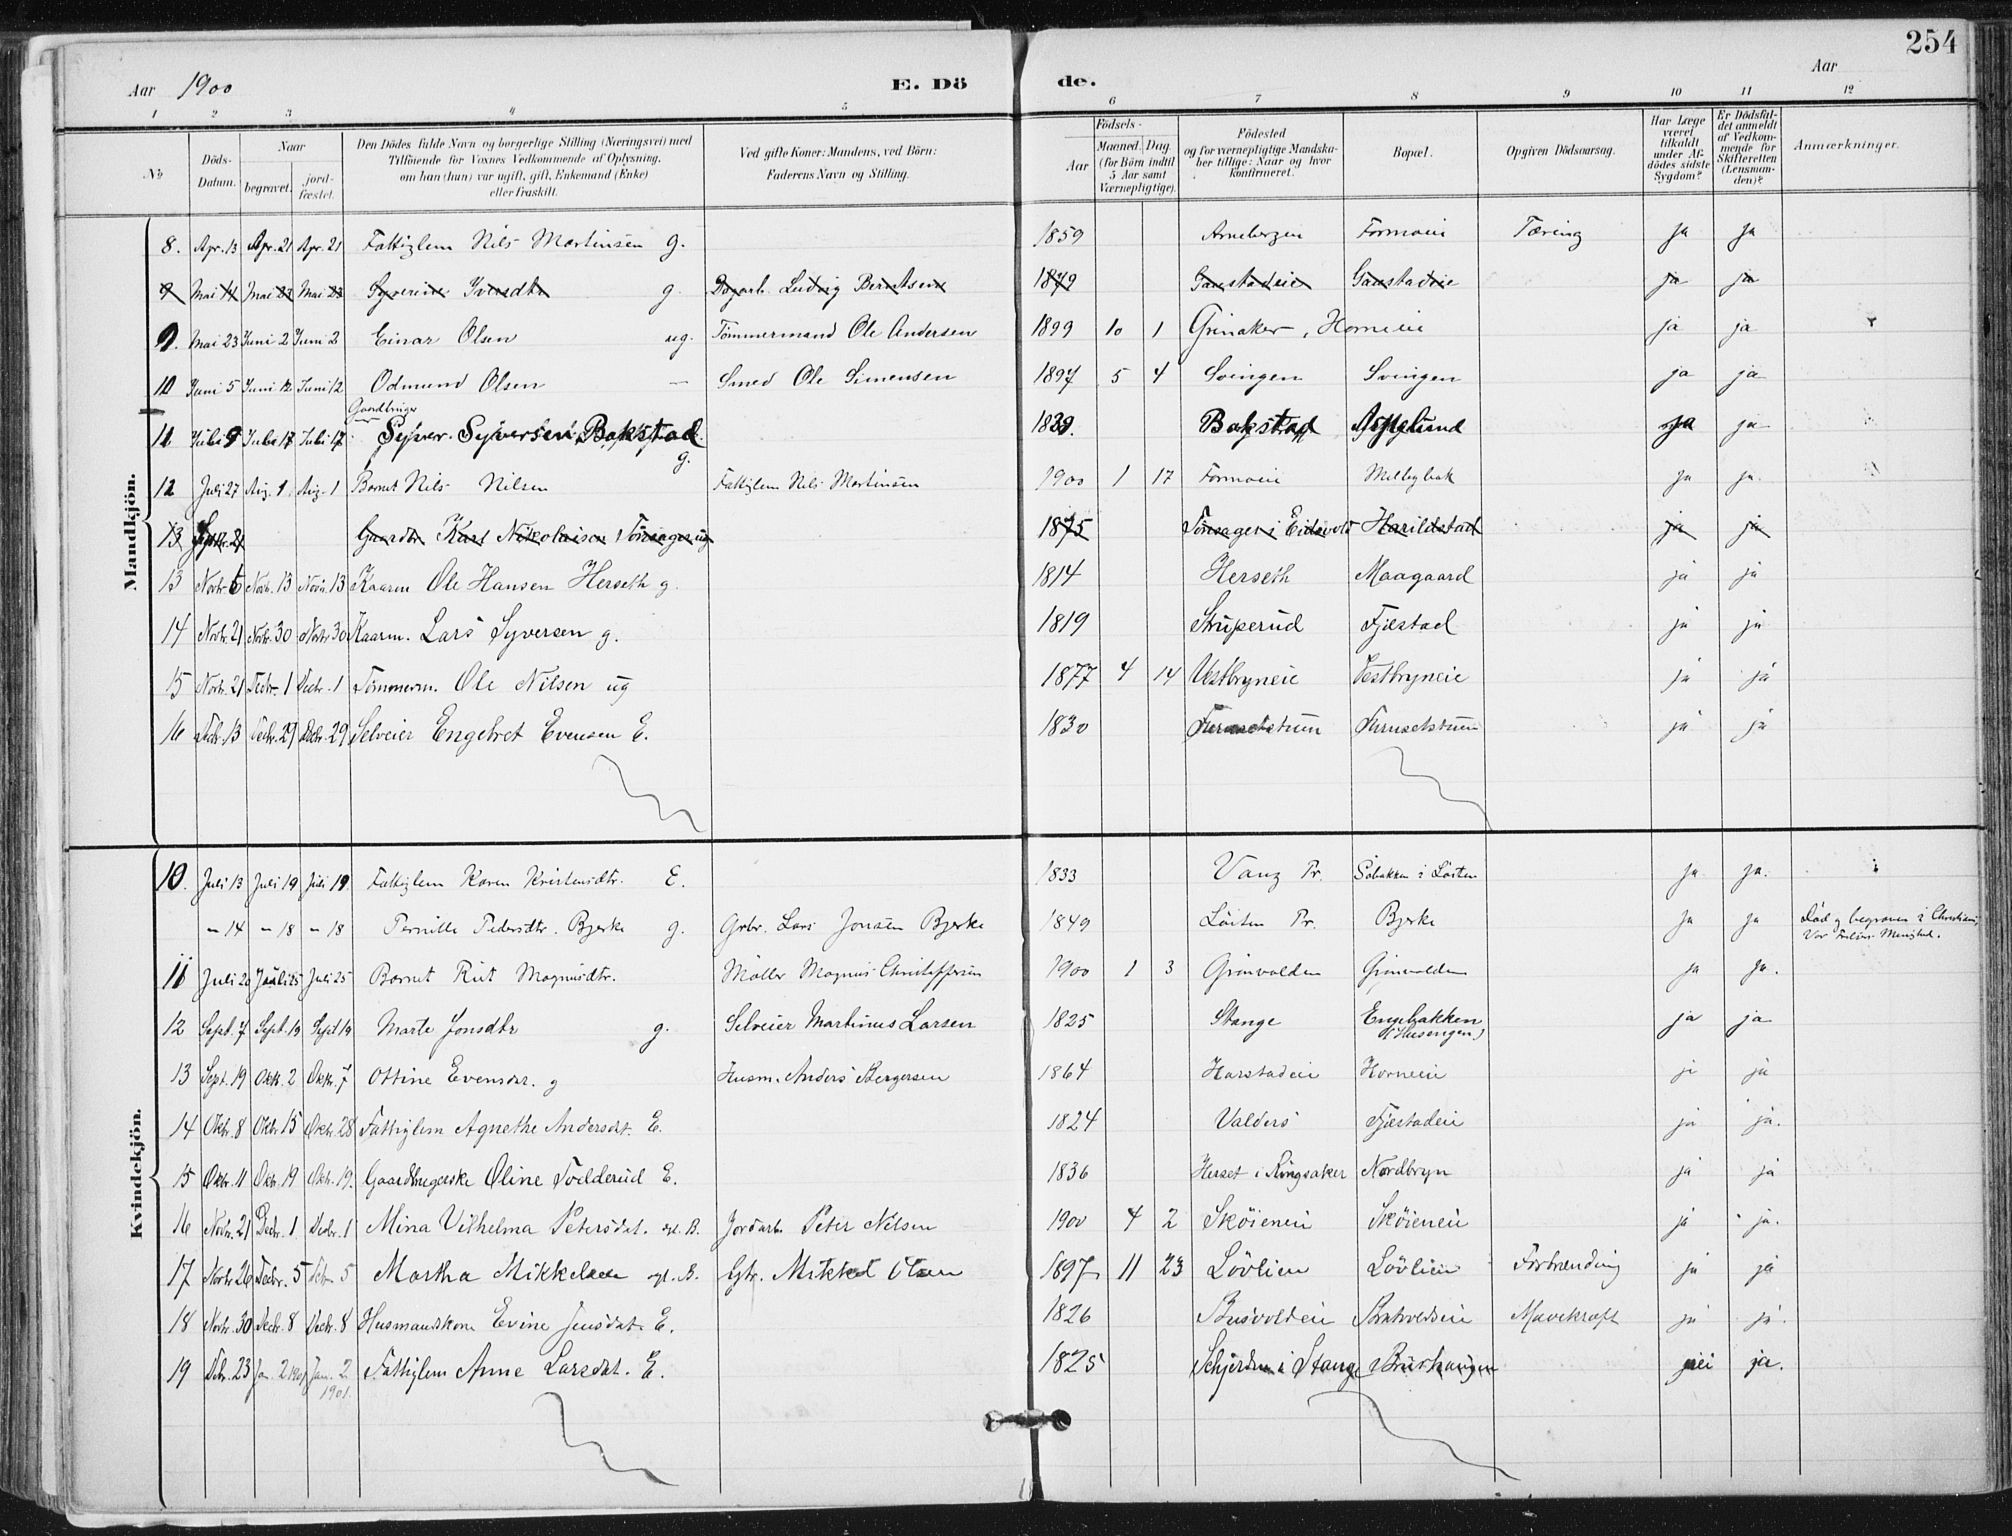 254
Aar 1900 E. Dö de. Aar
1 2 3 4 5 6 7 8 9 10 11 12
No Döds-Datum. Naar begravet. jord-fæstet. Den Dödes fulde Navn og borgerlige Stilling (Næringsvei) med Tilföiende for Voxnes Vedkommende af Oplysning, om han (hun) var ugift, gift, Enkemand (Enke) eller fraskilt. Ved gifte Koner: Mandens, ved Börn: Faderens Navn og Stilling. Födsels- Aar Maaned. Dag. (for Börn indtil 5 Aar samt Værnepligtige). Födested og for værnepligtige Mandskaber tillige: Naar og hvor konfirmeret. Bopæl. Opgiven Dödsaarsag. Har Læge været tilkaldt under Afdödes sidste Sygdom? Er Dödsfaldet anmeldt af Vedkommende for Skifteretten (Lensmanden)? Anmærkninger.
Mandkjön.
8. Apr. 13 Apr. 21 Apr. 21 Fattiglem Nils Martinsen g. 1859 Arnebergen Formoeie Tæring ja ja
9 Mai 14 Mai 23 Mai 23 Syverine Iversdtr g. Dagarb. Ludvig Berntsen 1879 Gaustadeie Gaustadeie ja ja
9. Mai 23 Juni 2 Juni 2 Einar Olsen ug. Tömmermand Ole Andersen 1899 10 1 Grinaker, Horneeie ja ja
10 Juni 5 Juni 12 Juni 12 Odmund Olsen — Smed Ole Simensen 1897 5 4 Svingen Svingen ja ja
Gaardbruger
11 Juli 9 Juli 17 Juli 17 Syver Syversen Bakstad g. 1839. Bakstad ja ja
12 Juli 27 Aug. 1 Aug. 1 Barnet Nils Nilsen Fattiglem Nils Martinsen 1900 1 17 Formoeie Melbybak ja ja
13 Septbr. 21 Gaardbr. Karl Nikolaisen Tönsager ug 1875 Tönsager i Eidsvold Harildstad ja ja
13 Novbr. 6 Novbr. 13 Novbr. 13 Kaarm Ole Hansen Herseth g. 1814 Herseth Maagaard ja ja
14 Novbr. 21 Novbr. 30 Novbr. 30 Kaarm. Lars Syversen g. 1819 Struperud Fjæstad ja ja
15 Novbr. 21 Decbr. 1 Decbr. 1 Tömmerm. Ole Nilsen ug 1877 4 14 Vestbryneie Vestbryneie ja ja
16 Decbr. 13 Decbr. 29 Decbr. 29 Selveier Engebret Evensen E. 1830 Furusetstuen Furusetstuen ja ja
Kvindekjön.
10. Juli 13 Juli 19 Juli 19 Fattiglem Karen Kristensdtr. E. 1833 Vang Pr. Sobakken i Löiten ja ja.
" 14 " 18 " 18 Pernille Pedersdtr. Bjerke g. Grbr. Lars Jonsen Bjerke 1849 Löiten Pr. Bjerke ja ja Död og begraven i Christiania,
Vor Frelsers Menighed.
11 Juli 20 Juli 25 Juli 25 Barnet Rut Magnusdtr. Möller Magnus Christoffersen 1900 1 3 Grönvolden Grönvolden ja ja.
12 Sept. 7 Sept. 19 Sept 19 Marte Jonsdtr g. Selveier Martinus Larsen 1825 Stange Engebakken ja ja
(Husengen)
13 Sept. 19 Oktr. 2 Oktr. 7 Ottine Evensdtr. g Husm. Anders Bergersen 1864 Harstadeie Horneeie ja ja
14 Oktr. 8 Oktr 15 Oktr. 28 Fattiglem Agnethe Andersdt. E. 1824 Valders Fjæstadeie ja ja.
15 Oktr. 11 Oktr. 19 Oktr. 19. Gaardbrugerske Oline Tolderud E. 1836 Herset i Ringsaker Nordbryn ja ja
16 Novbr. 21 Decbr. 1 Decbr. 1 Mina Vilhelma Petersdat. egt. B. Jordarb. Peter Nilsen 1900 4 2 Sköieneie Sköieneie ja ja.
17 Novbr. 26 Decbr. 5 Decbr. 5 Martha Mikkelsen egt. B. Gbr. Mikkel Olsen 1897 11 23 Lövlien Lövlien Forbrænding ja ja
18 Novbr. 30 Decbr. 8 Decbr. 8 Husmandskone Evine Jensdat. E. 1826 Busvoldeie Mavekræft ja ja.
19 Dcbr. 23 Jan. 2 1901 Jan. 2 1901. Fattiglem Anne Larsdat. E. 1825 Schjerden i Stange Brurhaugen nei ja.